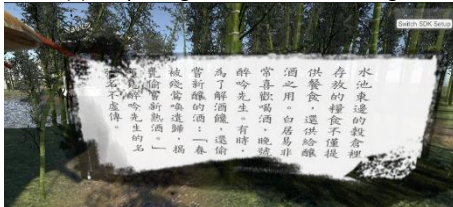 Switch SDK Setup
水池東邊的穀倉裡
存放的糧食不僅提
供餐食，還供給釀
酒之用。白居易非
常喜歡喝酒，晚號
醉吟先生。有時，
為了解酒饞，還偷
嘗新釀的酒：「春
被殘鶯喚遣歸，揭
甕偷嘗新熟酒。」
見醉吟先生的名
名不虛傳。